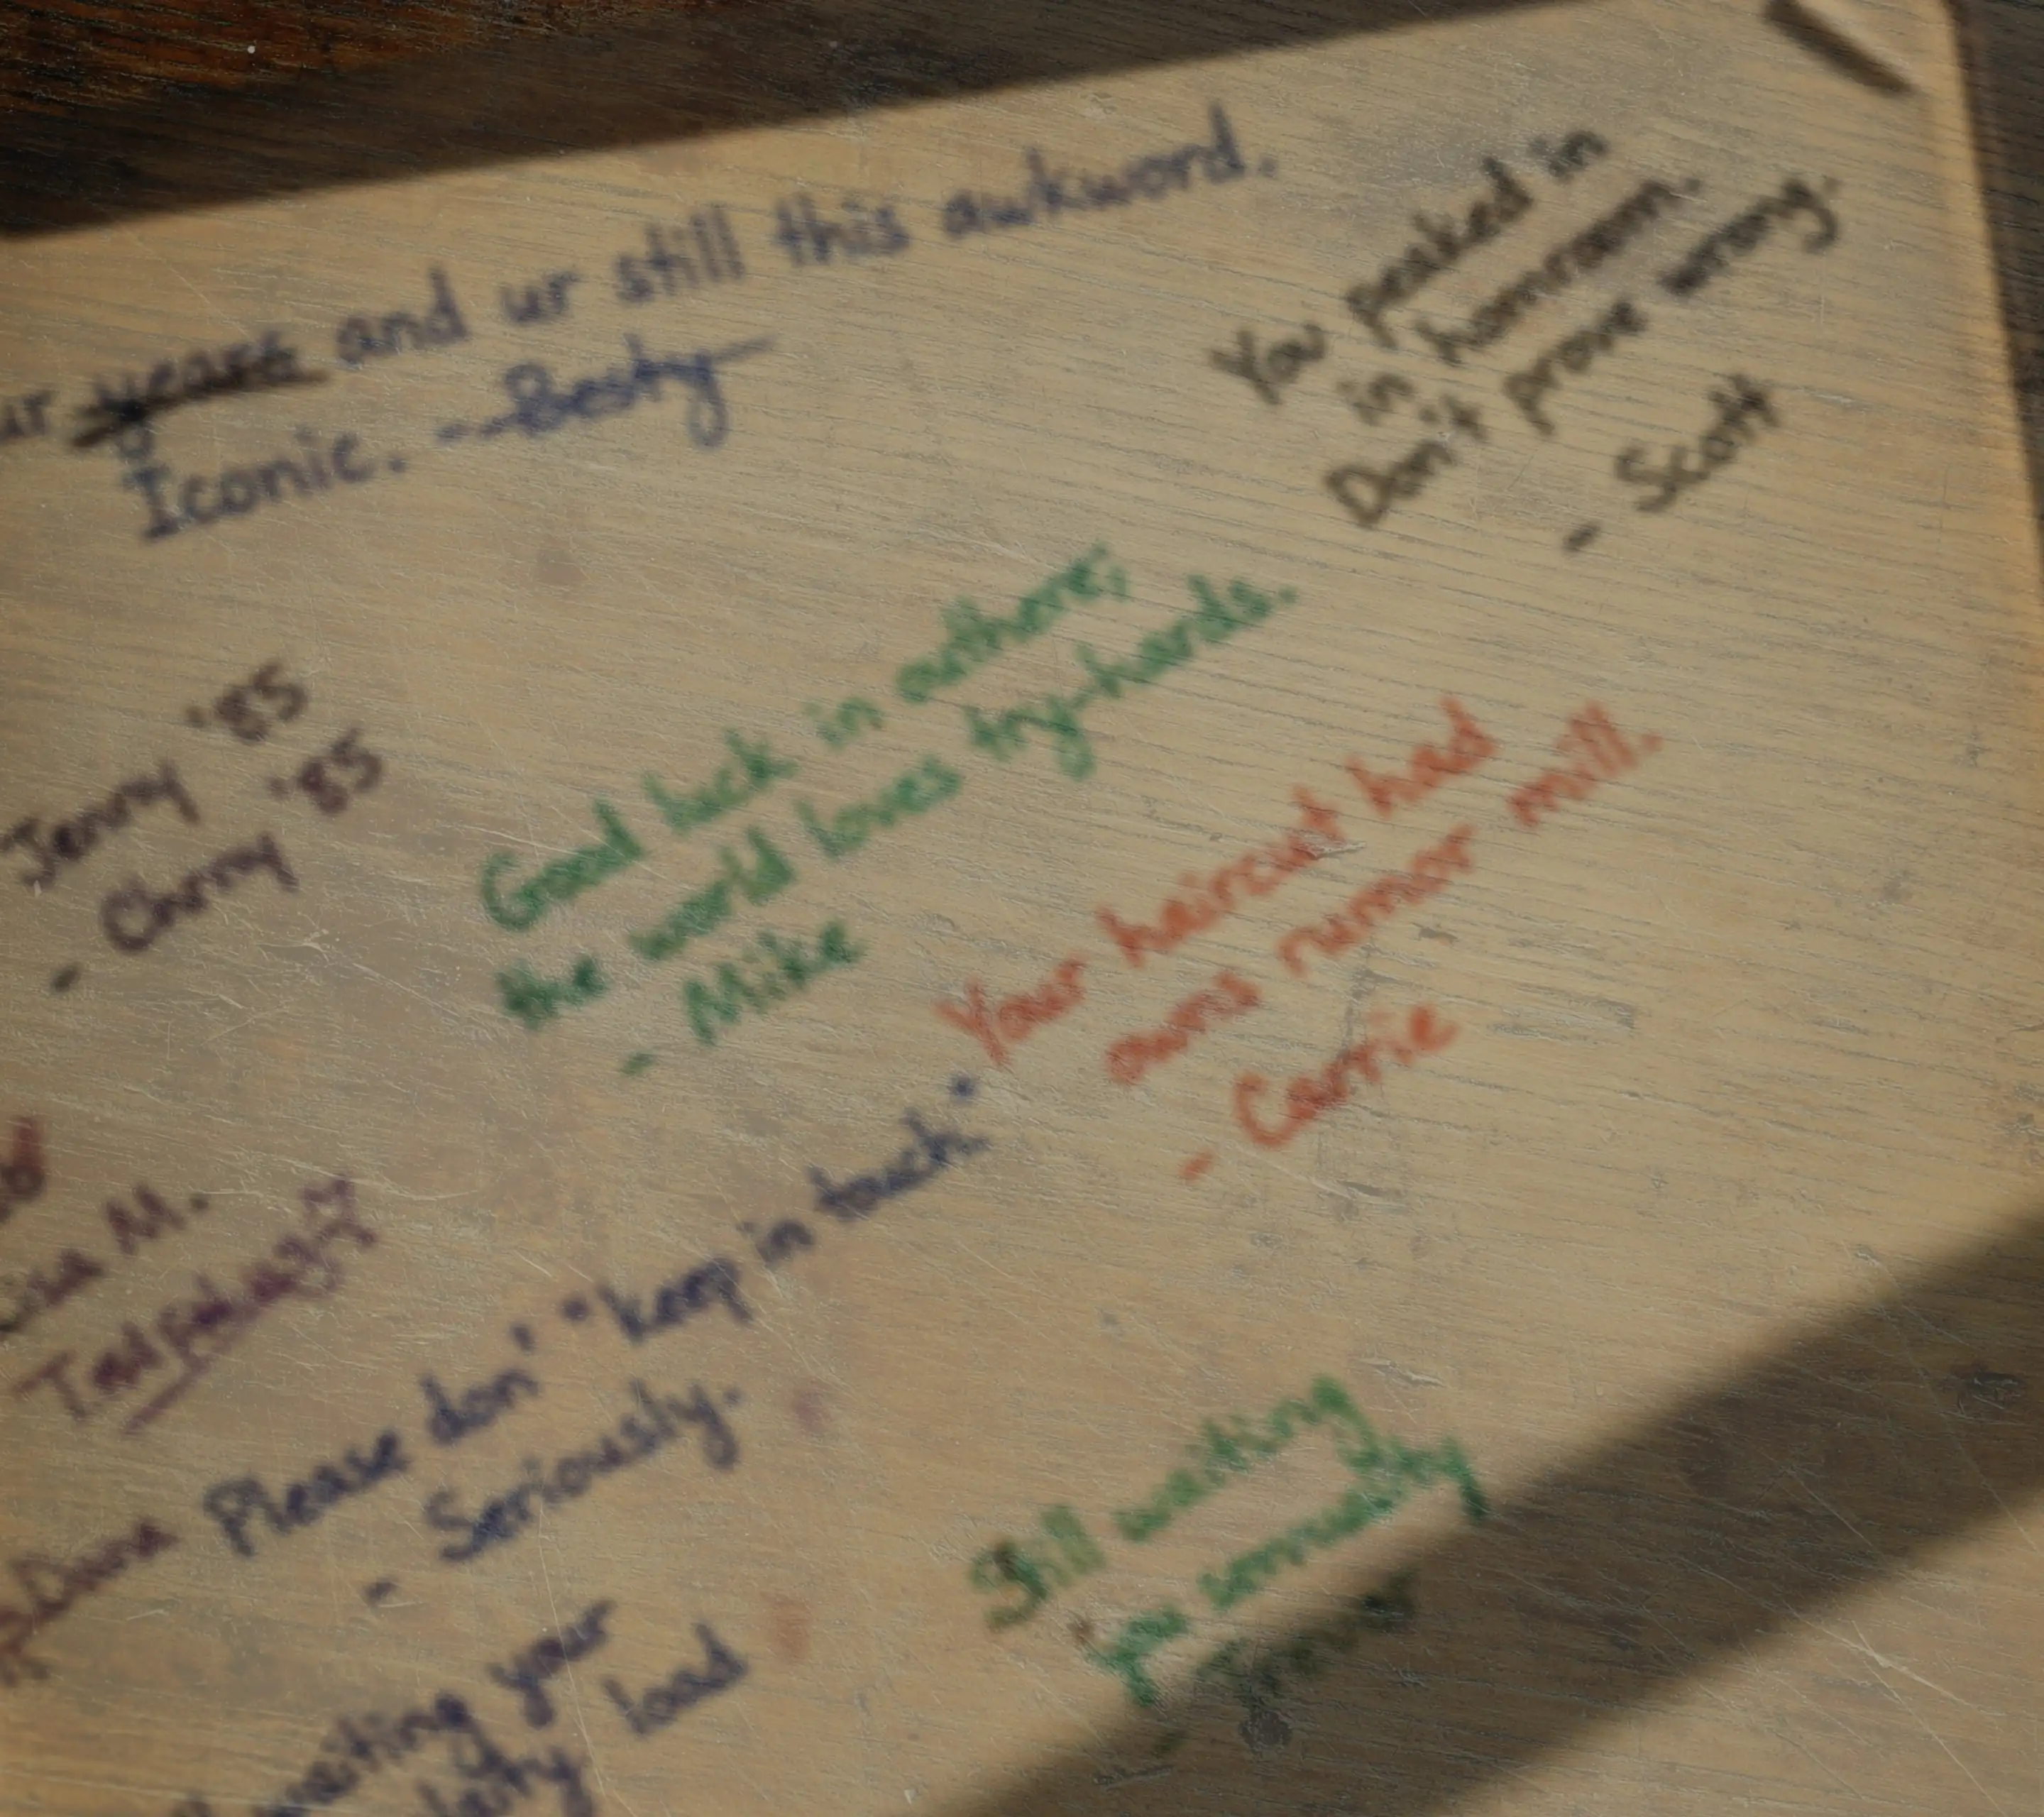 ur years and ur still this awkword.
Iconic. --Besty
You peaked in
in homroom.
Don't prove wrong.
- Scott
Jenny '85
- Chrny '85
Good luck in authore;
the world loves try-hards.
- Mike
Your haircut had
owns rumor mill.
- Carrie
Lisa M.
Dana Please don' "keep in touch."
- Seriously.
waiting your
load
Still waiting